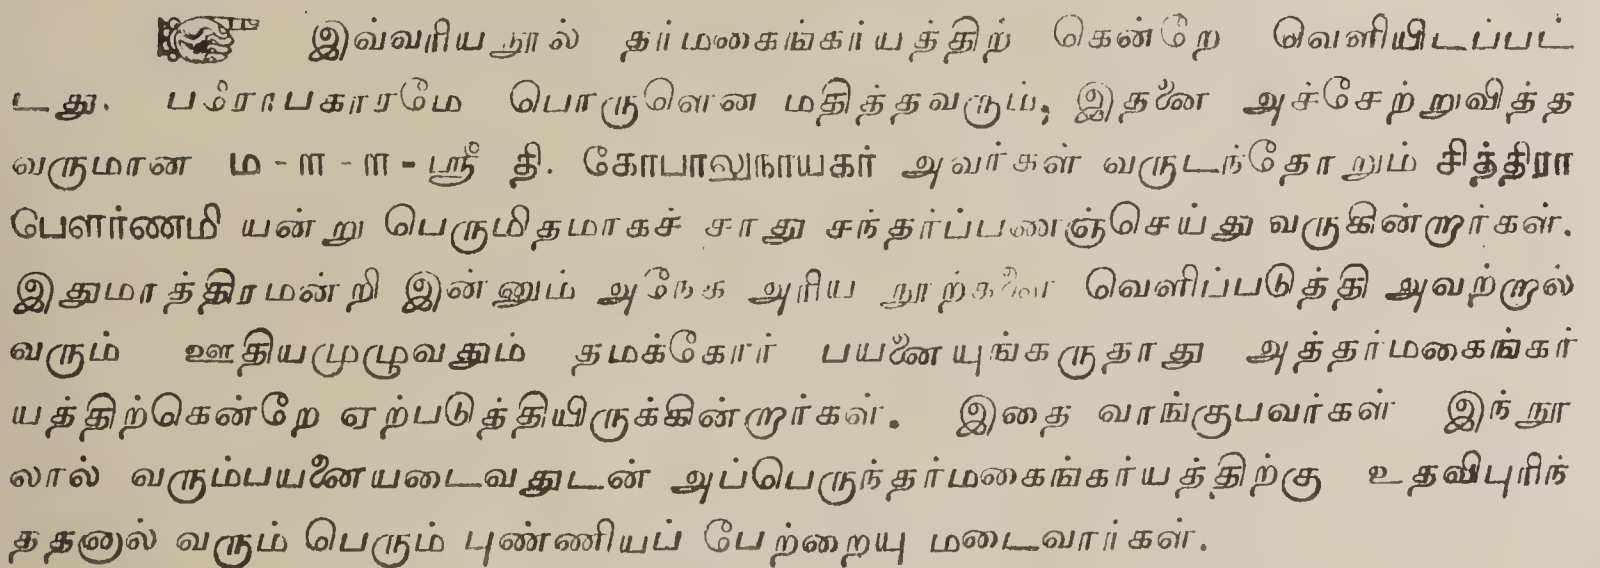 ☞ இவ்வரியநூல் தர்மகைங்கர்யத்திற் கென்றே வெளியிடப்பட்
டது. பரோபகாரமே பொருளென மதித்தவரும், இதனை அச்சேற்றுவித்த
வருமான ம-௱-௱-ஸ்ரீ தி. கோபாலுநாயகர் அவர்கள் வருடந்தோறும் சித்திரா
பௌர்ணமி யன்று பெருமிதமாகச் சாது சந்தர்ப்பணஞ்செய்து வருகின்றார்கள்.
இதுமாத்திரமன்றி இன்னும் அநேக அரிய நூற்களை வெளிப்படுத்தி அவற்றால்
வரும் ஊதியமுழுவதும் தமக்கோர் பயனையுங்கருதாது அத்தர்மகைங்கர்
யத்திற்கென்றே ஏற்படுத்தியிருக்கின்றார்கள். இதை வாங்குபவர்கள் இந்நூ
லால் வரும்பயனையடைவதுடன் அப்பெருந்தர்மகைங்கர்யத்திற்கு உதவிபுரிந்
ததனால் வரும் பெரும் புண்ணியப் பேற்றையு மடைவார்கள்.